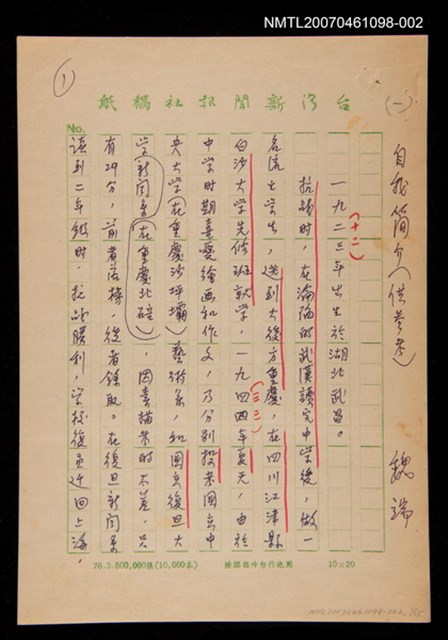 NMTL20070461098-002
①
台灣新聞報社稿紙
No.
(一)
自我簡介(供參考) 魏端
一九二三年出生於湖北武昌。
(十二)
抗戰時,在淪陷的武漢讀完中學後,做一
名流亡學生,逃到大後方重慶,在四川江津縣
白沙大學先修班就學,一九四四年夏天,由於
(三三)
中學時期喜愛繪画和作文,乃分別投考國立中
央大學(在重慶沙坪壩)藝術系,和國立復旦大
学新聞系(在重慶北碚),因素描考的不差,只
有29分,前者落榜,後者錄取。在復旦新聞系
讀到二年級時,抗战勝利,学校復員迁回上海,
76.3.500,000張(10,000本)
10×20
NMTL20070461098-002